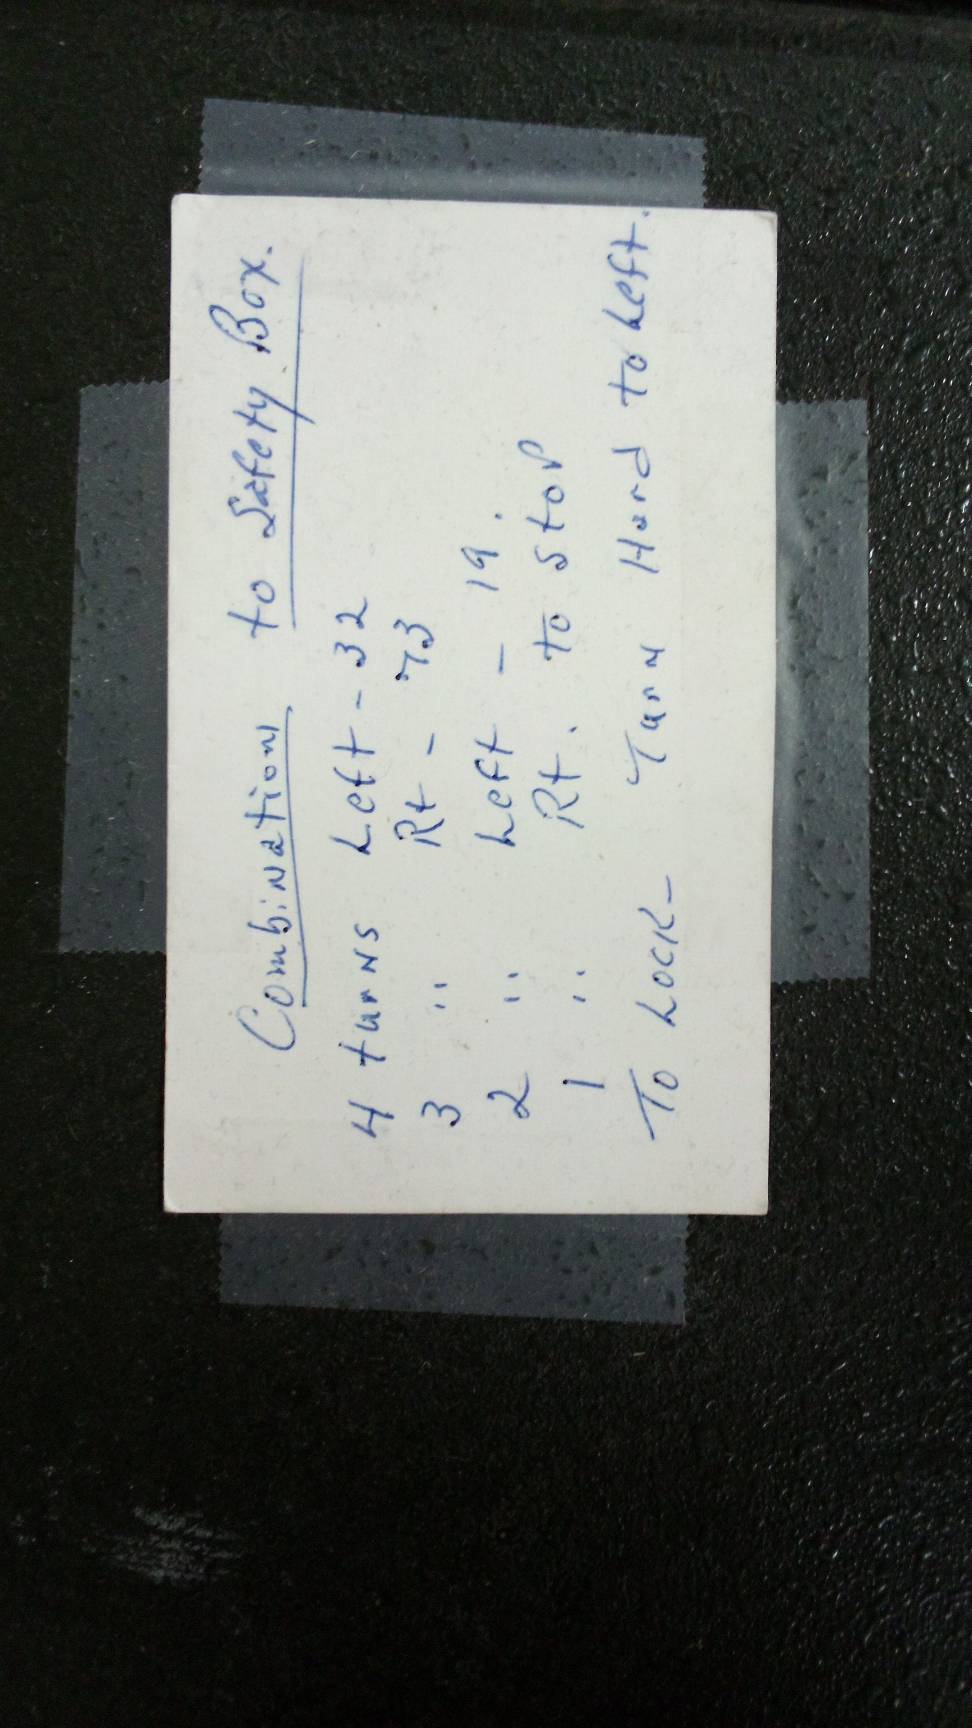 Combination to Safety Box.
4 turns Left - 32
3 " Rt - 73
2 " Left - 19.
1 " Rt. to Stop
To Lock - Turn Hard to Left.